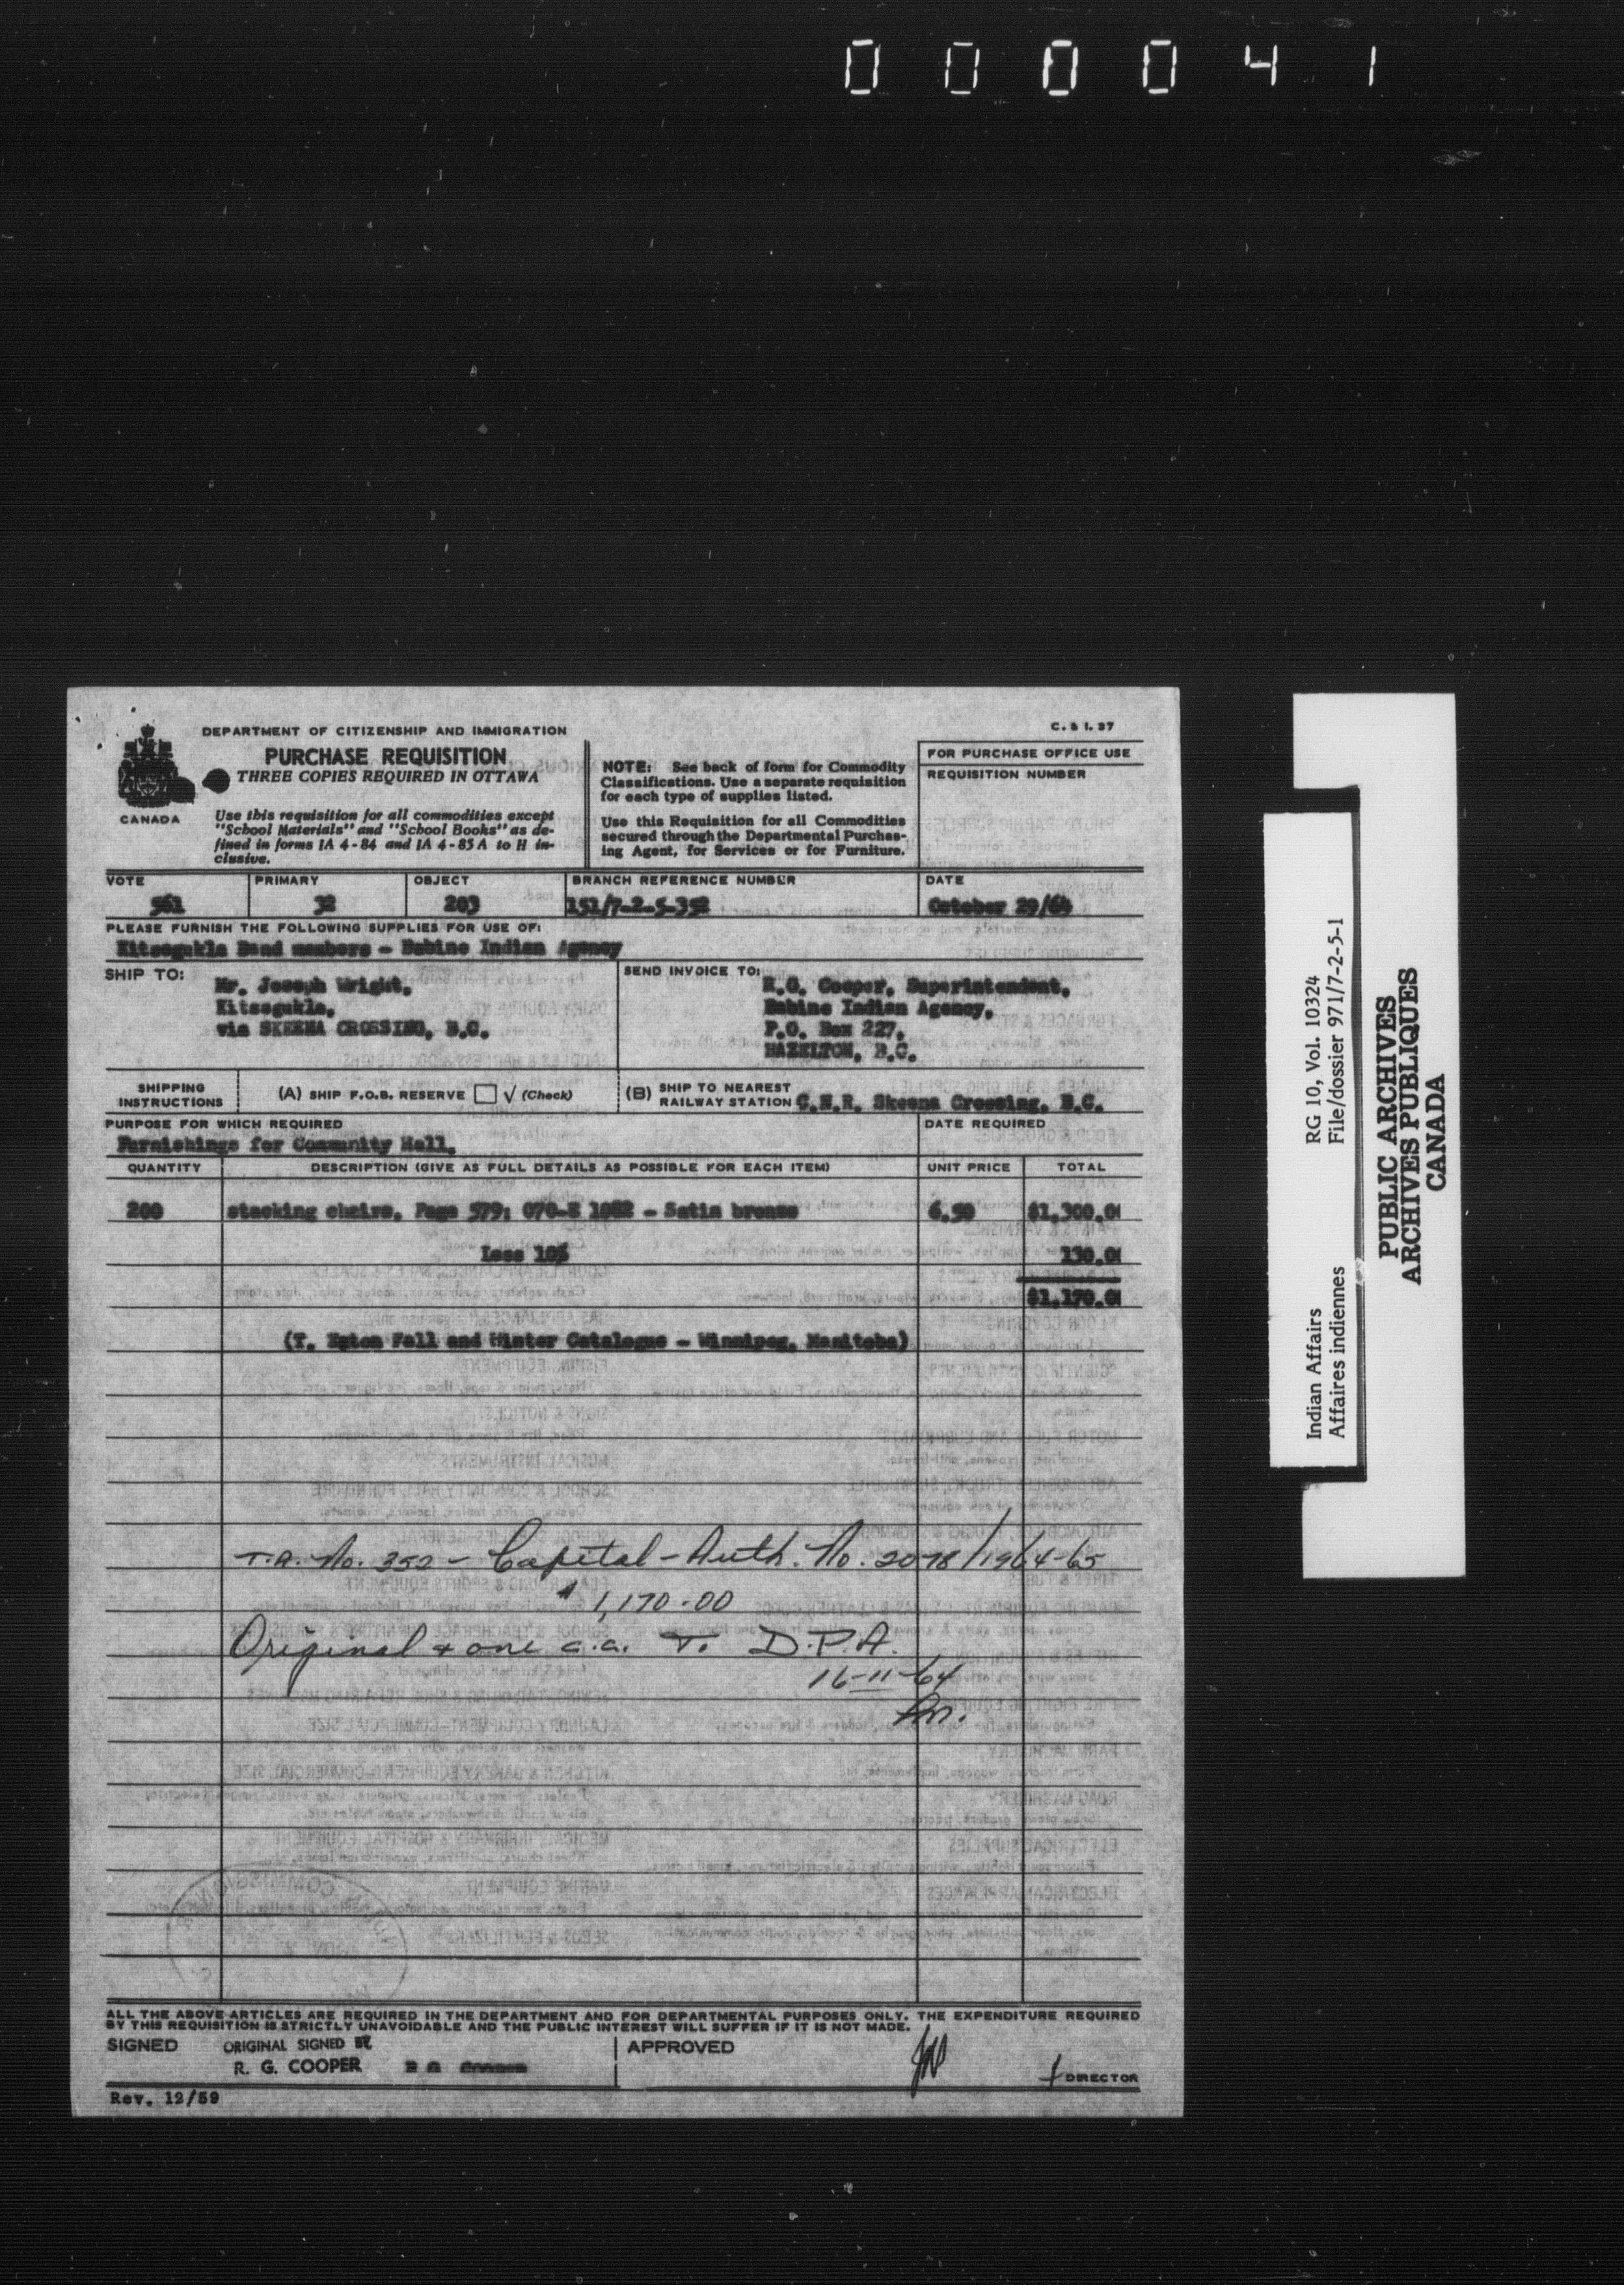 000041
DEPARTMENT OF CITIZENSHIP AND IMMIGRATION
PURCHASE REQUISITION
THREE COPIES REQUIRED IN OTTAWA
CANADA
Use this requisition for all commodities except
"School Materials" and "School Books" as de-
fined in forms IA 4-84 and IA 4-85 A to H in-
clusive.
NOTE: See back of form for Commodity
Classifications. Use a separate requisition
for each type of supplies listed.
Use this Requisition for all Commodities
secured through the Departmental Purchas-
ing Agent, for Services or for Furniture.
C. & I. 37
FOR PURCHASE OFFICE USE
REQUISITION NUMBER
VOTE PRIMARY OBJECT BRANCH REFERENCE NUMBER DATE
561 32 203 151/7-2-5-352 October 29/64
PLEASE FURNISH THE FOLLOWING SUPPLIES FOR USE OF:
Kitsegukla Band members - Babine Indian Agency
SHIP TO:
Mr. Joseph Wright,
Kitsegukla,
via SKEENA CROSSING, B.C.
SEND INVOICE TO:
R.G. Cooper, Superintendent,
Babine Indian Agency,
P.O. Box 227,
HAZELTON, B.C.
SHIPPING
INSTRUCTIONS
(A) SHIP F.O.B. RESERVE √ (Check)
(B) SHIP TO NEAREST
RAILWAY STATION C.N.R. Skeena Crossing, B.C.
PURPOSE FOR WHICH REQUIRED DATE REQUIRED
Furnishings for Community Hall.
QUANTITY DESCRIPTION (GIVE AS FULL DETAILS AS POSSIBLE FOR EACH ITEM) UNIT PRICE TOTAL
200 stacking chairs, Page 579: 070-E 1082 - Satin bronze 6.50 $1,300.0
Less 10% 130.0
$1,170.0
(T. Eaton Fall and Winter Catalogue - Winnipeg, Manitoba)
T.A. No. 352 - Capital - Auth. No. 2078/1964-65
$1,170.00
Original + one c.c. To D.P.A.
16-11-64
ALL THE ABOVE ARTICLES ARE REQUIRED IN THE DEPARTMENT AND FOR DEPARTMENTAL PURPOSES ONLY. THE EXPENDITURE REQUIRED
BY THIS REQUISITION IS STRICTLY UNAVOIDABLE AND THE PUBLIC INTEREST WILL SUFFER IF IT IS NOT MADE.
SIGNED ORIGINAL SIGNED BY
R. G. COOPER R G Cooper
APPROVED
DIRECTOR
Rev. 12/59
Indian Affairs RG 10, Vol. 10324
Affaires indiennes File/dossier 971/7-2-5-1
PUBLIC ARCHIVES
ARCHIVES PUBLIQUES
CANADA